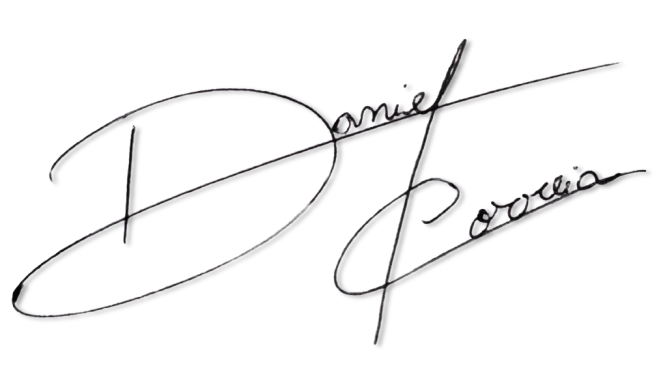 Daniel
Correia